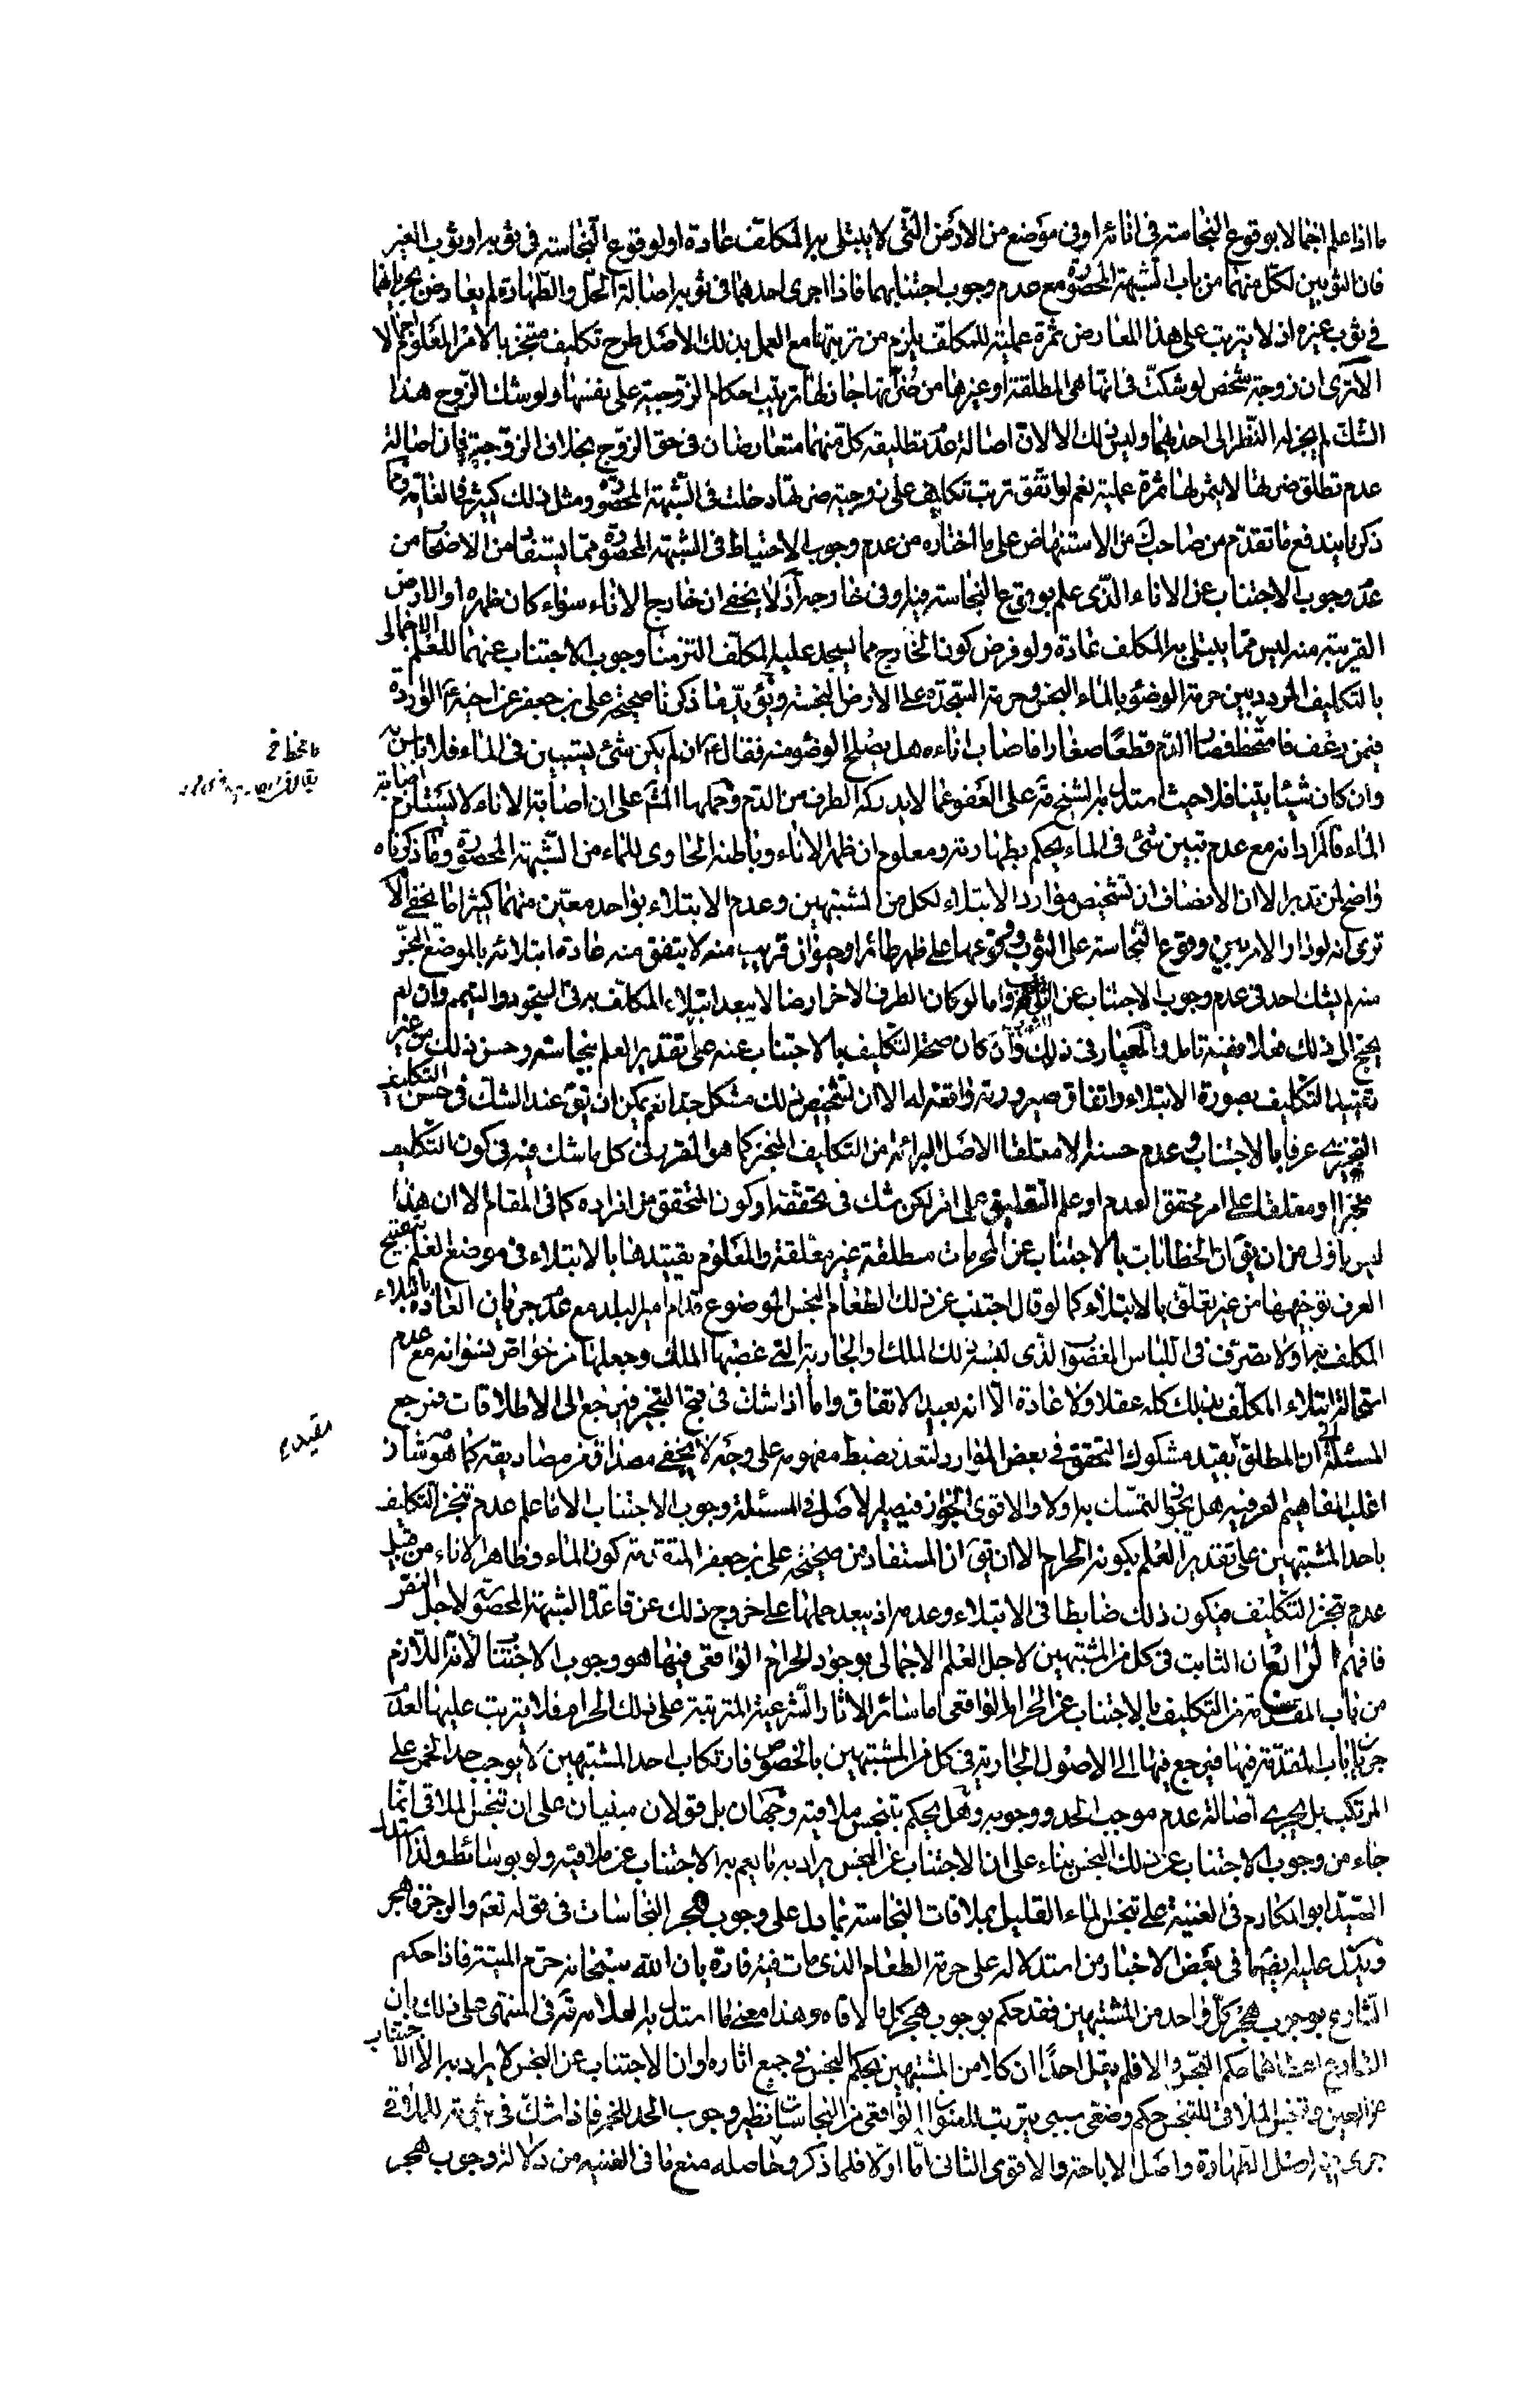 ما اذا علم اجمالا بوقوع النجاسة فى انائه او فى موضع من الارض التى لا يبتلى به المكلف عادة او بوقوع النجاسة فى ثوبه او ثوب الغير
فان الثوبين لكل منهما من باب الشبهة المحصورة مع عدم وجوب اجتنابهما فاذا اجرى احدهما فى ثوبه اصالة الحل و الطهارة لم يعارض بجريانهما
فى ثوب غيره اذ لا يترتب على هذا المعارض ثمرة عملية للمكلف يلزم من ترتبها مع العمل بذلك الاصل طرح تكليف متنجز بالامر المعلوم اجمالا
الا ترى ان زوجة شخص لو شكت فى انها هى المطلقة او غيرها من ضراتها جاز لها ترتيب احكام الزوجية على نفسها و لو شك الزوج هذا
الشك لم يجز له النظر الى احدهما و ليس ذلك الا لان اصالة عدم تطليقه كل منهما متعارضان فى حق الزوج بخلاف الزوجة فان اصالة
عدم تطلق ضرتها لا يثمر لها ثمرة عملية نعم لو اتفق ترتب تكليف على زوجية ضرتها دخلت فى الشبهة المحصورة و مثل ذلك كثير فى الغاية و مما
ذكرنا يندفع ما تقدم من صاحب ك من الاستنهاض على ما اختاره من عدم وجوب الاحتياط فى الشبهة المحصورة مما يستفاد من الاصحاب من
عدم وجوب الاجتناب عن الاناء الذى علم بوقوع النجاسة فيه او فى خارجه اذ لا يخفى ان خارج الاناء سواء كان ظهره او الارض
القريبة منه ليس مما يبتلى به المكلف عادة و لو فرض كون الخارج مما يسجد عليه المكلف التزمنا وجوب الاجتناب عنهما للعلم الاجمالى
بالتكليف المردد بين حرمة الوضوء بالماء النجس و حرمة السجدة على الارض النجسة و يؤيد ما ذكرنا صحيحة على بن جعفر عن اخيه ع الواردة
فيمن رعف فامتخط فصار الدم قطعا صغارا فاصاب اناءه هل يصلح الوضوء منه فقال ع ان لم يكن شئ يستبين فى الماء فلا باس به
و ان كان شيئا بينا فلا حيث استدل به الشيخ قه على العفو عما لا يدركه الطرف من الدم و حملها المشه على ان اصابة الاناء لا يستلزم اصابة
الماء فالمراد انه مع عدم تبين شئ فى الماء يحكم بطهارته و معلوم ان ظهر الاناء و باطنه الحاوى للماء من الشبهة المحصورة و ما ذكرناه
واضح لمن تدبر الا ان الانصاف ان تشخيص موارد الابتلاء لكل من المشتبهين و عدم الابتلاء بواحد معين منهما كثيرا ما يخفى الا
ترى انه لو دار الامر بين وقوع النجاسة على الثوب و وقوعها على ظهر طائر او حيوان قريب منه لا يتفق منه عادة ابتلائه بالموضع النجس
منه لم يشك احد فى عدم وجوب الاجتناب عن الثوب و اما لو كان الطرف الاخر ارضا لا يبعد ابتلاء المكلف به فى السجود و التيمم و ان لم
يحتج الى ذلك فعلا ففيه تامل و المعيار فى ذلك و ان كان صحة التكليف بالاجتناب عنه على تقدير العلم بنجاسته و حسن ذلك من غير
تقييد التكليف بصورة الابتلاء و اتفاق صيرورته واقعة له الا ان تشخيص ذلك مشكل جدا نعم يمكن ان يق عند الشك فى حسن التكليف
التنجيزى عرفا بالاجتناب و عدم حسنه الا معلقا الاصل البرائة من التكليف المنجز كما هو المقرر فى كل ما شك فيه فى كون التكليف
منجزا او معلقا على امر محقق العدم او علم التعليق على امر لكن شك فى تحققه او كون المتحقق من افراده كما فى المقام الا ان هذا
ليس باولى من ان يق ان الخطابات بالاجتناب عن المحرمات مطلقة غير معلقة و المعلوم تقييدها بالابتلاء فى موضع العلم بتقبيح
العرف توجيهها من غير تعلق بالابتلاء كما لو قال اجتنب عن ذلك الطعام النجس الموضوع قدام امير البلد مع عدم جريان العادة بابتلاء
المكلف به او لا تصرف فى اللباس المغصوب الذى لبسه ذلك الملك و الجارية التى غصبها الملك و جعلها من خواص نسوانه مع عدم
استحالة ابتلاء المكلف بذلك كله عقلا و لا عادة الا انه بعيد الاتفاق و اما اذا شك فى قبح التنجيز فيرجع الى الاطلاقات فمرجع
المسئلة الى ان المطلق المقيد بقيد مشكوك التحقق فى بعض الموارد لتعذر ضبط مفهومه على وجه لا يخفى مصداق من مصاديقه كما هو شان
اغلب المفاهيم العرفية هل يجوز التمسك به او لا و الاقوى الجواز فيصير الاصل فى المسئلة وجوب الاجتناب الا ما علم عدم تنجز التكليف
باحد المشتبهين على تقدير العلم بكونه الحرام الا ان يق ان المستفاد من صحيحة على بن جعفر المتقدمة كون الماء و ظاهر الاناء من قبيل
عدم تنجز التكليف فيكون ذلك ضابطا فى الابتلاء و عدمه اذ يبعد حملها على خروج ذلك عن قاعدة الشبهة المحصورة لاجل النص
فافهم الرابع ان الثابت فى كل من المشتبهين لاجل العلم الاجمالى بوجود الحرام الواقعى فيها هو وجوب الاجتناب لانه اللازم
من باب المقدمة من التكليف بالاجتناب عن الحرام الواقعى اما سائر الاثار الشرعية المترتبة على ذلك الحرام فلا يترتب عليها لعدم
جريان باب المقدمة فيها فيرجع فيها الى الاصول الجارية فى كل من المشتبهين بالخصوص فارتكاب احد المشتبهين لا يوجب حد الخمر على
المرتكب بل يجرى اصالة عدم موجب الحد و وجوبه و هل يحكم بتنجس ملاقيه وجهان بل قولان مبنيان على ان تنجس الملاقى انما
جاء من وجوب الاجتناب عن ذلك النجس بناء على ان الاجتناب عن النجس يراد به ما يعم الاجتناب عن ملاقيه و لو بوسائط و لذا استدل
السيد ابو المكارم فى الغنية على تنجس الماء القليل بملاقات النجاسة بما دل على وجوب هجر النجاسات فى قوله تعم و الرجز فاهجر
و يدل عليه ايضا ما فى بعض الاخبار من استدلاله على حرمة الطعام الذى مات فيه فارة بان الله سبحانه حرم الميتة فاذا حكم
الشارع بوجوب هجر كل واحد من المشتبهين فقد حكم بوجوب هجر كل ما لاقاه و هذا معنى ما استدل به العلامة قه فى المنتهى على ذلك بان
الشارع اعطاهما حكم النجس و الا فلم يقل احدا ان كلا من المشتبهين بحكم النجس فى جميع اثاره او ان الاجتناب عن النجس لا يراد به الا الاجتناب
عن العين و تنجس الملاقى للنجس حكم وضعى سببى يترتب للعنوان الواقعى من النجاسات نظير وجوب الحد للخمر فاذا شك فى ثبوته للملاقى
جرى فيه اصل الطهارة و اصل الاباحة و الاقوى الثانى اما اولا فلما ذكر و حاصله منع ما فى الغنية من دلالة وجوب هجر
فامتخط خ
مقيد م